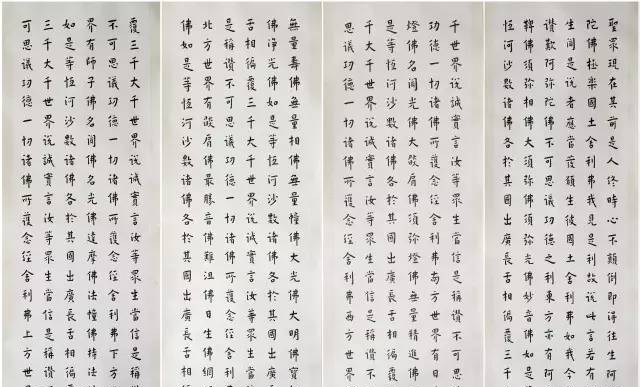 聖眾現在其前是人終時心不顛倒即得往生阿
陀佛極樂國土舍利弗我見是利故說此言若有
生聞是說者應當發願生彼國土舍利弗如我今
讚歎阿彌陀佛不可思議功德之利東方亦有阿
鞞佛須彌相佛大須彌佛須彌光佛妙音佛如是
恒河沙數諸佛各於其國出廣長舌相徧覆三千
千世界說誠實言汝等眾生當信是稱讚不可思
功德一切諸佛所護念經舍利弗南方世界有日
燈佛名聞光佛大燄肩佛須彌燈佛無量精進佛
是等恒河沙數諸佛各於其國出廣長舌相徧覆
千大千世界說誠實言汝等眾生當信是稱讚不
思議功德一切諸佛所護念經舍利弗西方世界
無量壽佛無量相佛無量幢佛大光佛大明佛寶
佛淨光佛如是等恒河沙數諸佛各於其國出廣
舌相徧覆三千大千世界說誠實言汝等眾生當
是稱讚不可思議功德一切諸佛所護念經舍利
北方世界有燄肩佛最勝音佛難沮佛日生佛網
佛如是等恒河沙數諸佛各於其國出廣長舌
覆三千大千世界說誠實言汝等眾生當信是稱
不可思議功德一切諸佛所護念經舍利弗下方
界有師子佛名聞佛名光佛達摩佛法幢佛持法
如是等恒河沙數諸佛各於其國出廣長舌相徧
三千大千世界說誠實言汝等眾生當信是稱讚
可思議功德一切諸佛所護念經舍利弗上方世